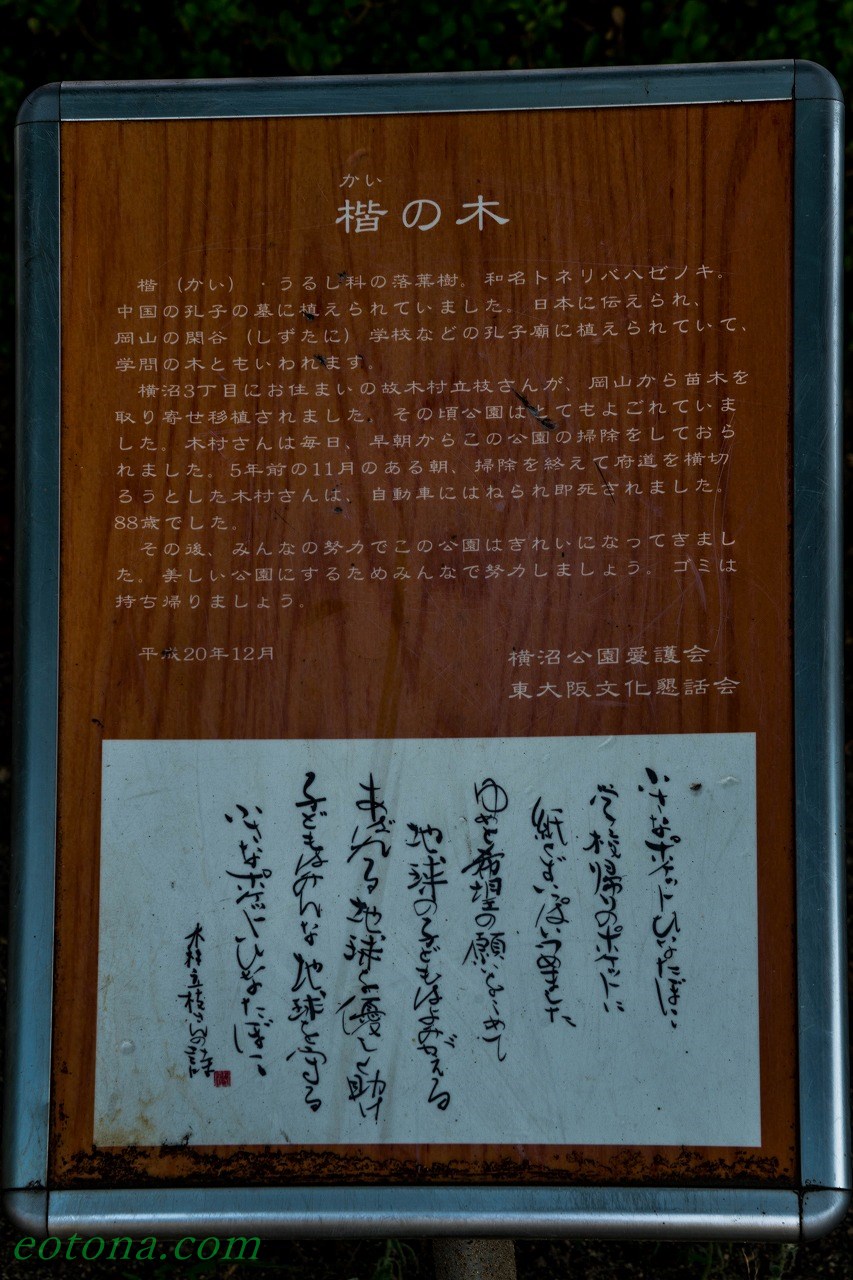 かい
楷の木
楷（かい）・うるし科の落葉樹。和名トネリバハゼノキ。
中国の孔子の墓に植えられていました。日本に伝えられ、
岡山の閑谷（しずたに）学校などの孔子廟に植えられていて、
学問の木ともいわれます。
横沼3丁目にお住まいの故木村立枝さんが、岡山から苗木を
取り寄せ移植されました。その頃公園はとてもよごれていま
した。木村さんは毎日、早朝からこの公園の掃除をしておら
れました。5年前の11月のある朝、掃除を終えて府道を横切
ろうとした木村さんは、自動車にはねられ即死されました。
88歳でした。
その後、みんなの努力でこの公園はきれいになってきまし
た。美しい公園にするためみんなで努力しましょう。ゴミは
持ち帰りましょう。
平成20年12月
横沼公園愛護会
東大阪文化懇話会
小さなポケットひなたぼこ
学校帰りのポケットに
いっぱいつめました
ゆめと希望の願いをこめて
地球の子どもはよみがえる
地球を優しく助け
子どもはみんな地球を守る
小さなポケットひなたぼこ
木村立枝さんの詩
eotona.com